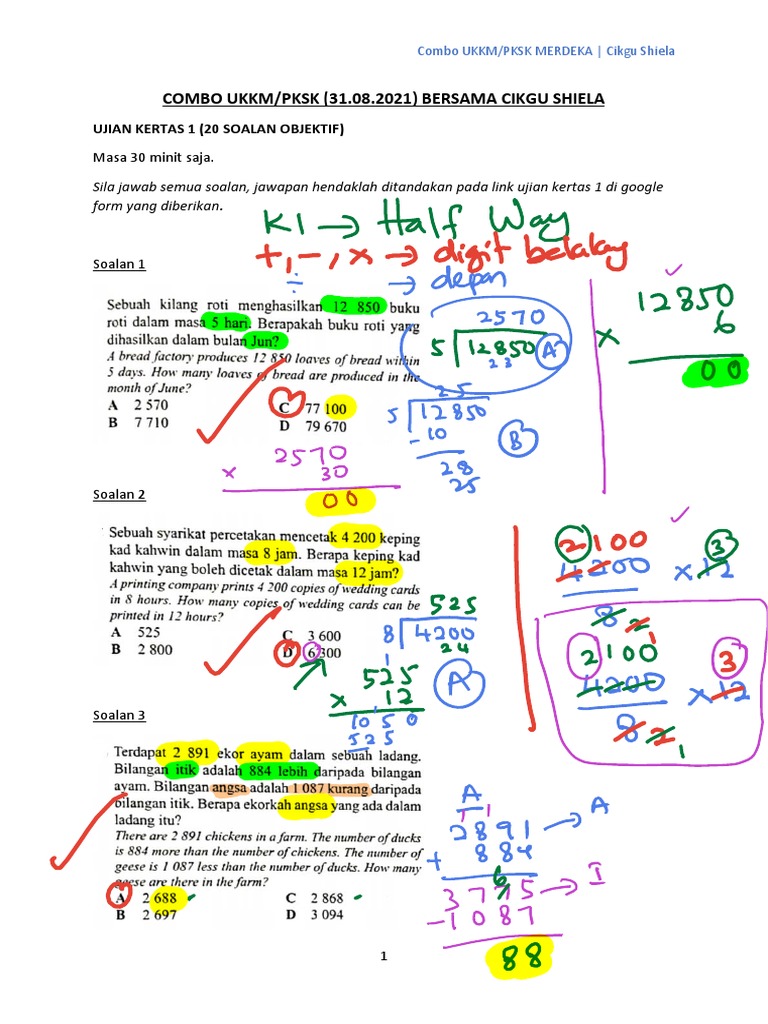 Combo UKKM/PKSK MERDEKA | Cikgu Shiela
COMBO UKKM/PKSK (31.08.2021) BERSAMA CIKGU SHIELA
UJIAN KERTAS 1 (20 SOALAN OBJEKTIF)
Masa 30 minit saja.
Sila jawab semua soalan, jawapan hendaklah ditandakan pada link ujian kertas 1 di google
form yang diberikan.
K1 → Half Way
+, -, × → digit belakag
÷ → depan
Soalan 1
Sebuah kilang roti menghasilkan 12 850 buku
roti dalam masa 5 hari. Berapakah buku roti yang
dihasilkan dalam bulan Jun?
A bread factory produces 12 850 loaves of bread within
5 days. How many loaves of bread are produced in the
month of June?
A 2 570
B 7 710
C 77 100
D 79 670
2570
5 12850 A
2 3
25
5 12850
-10
28
25
B
12850
× 6
00
2570
× 30
00
Soalan 2
Sebuah syarikat percetakan mencetak 4 200 keping
kad kahwin dalam masa 8 jam. Berapa keping kad
kahwin yang boleh dicetak dalam masa 12 jam?
A printing company prints 4 200 copies of wedding cards
in 8 hours. How many copies of wedding cards can be
printed in 12 hours?
A 525
B 2 800
C 3 600
D 6 300
525
8 4200
2 4
1
525
× 12
1050
525
A
2100 3
4200 × 12
8 2
2100 3
4200 × 12
8 2 1
Soalan 3
Terdapat 2 891 ekor ayam dalam sebuah ladang.
Bilangan itik adalah 884 lebih daripada bilangan
ayam. Bilangan angsa adalah 1 087 kurang daripada
bilangan itik. Berapa ekorkah angsa yang ada dalam
ladang itu?
There are 2 891 chickens in a farm. The number of ducks
is 884 more than the number of chickens. The number of
geese is 1 087 less than the number of ducks. How many
geese are there in the farm?
A 2 688
B 2 697
C 2 868
D 3 094
A
1 1
2891 → A
+ 884
6
3775 → I
-1087
88
1